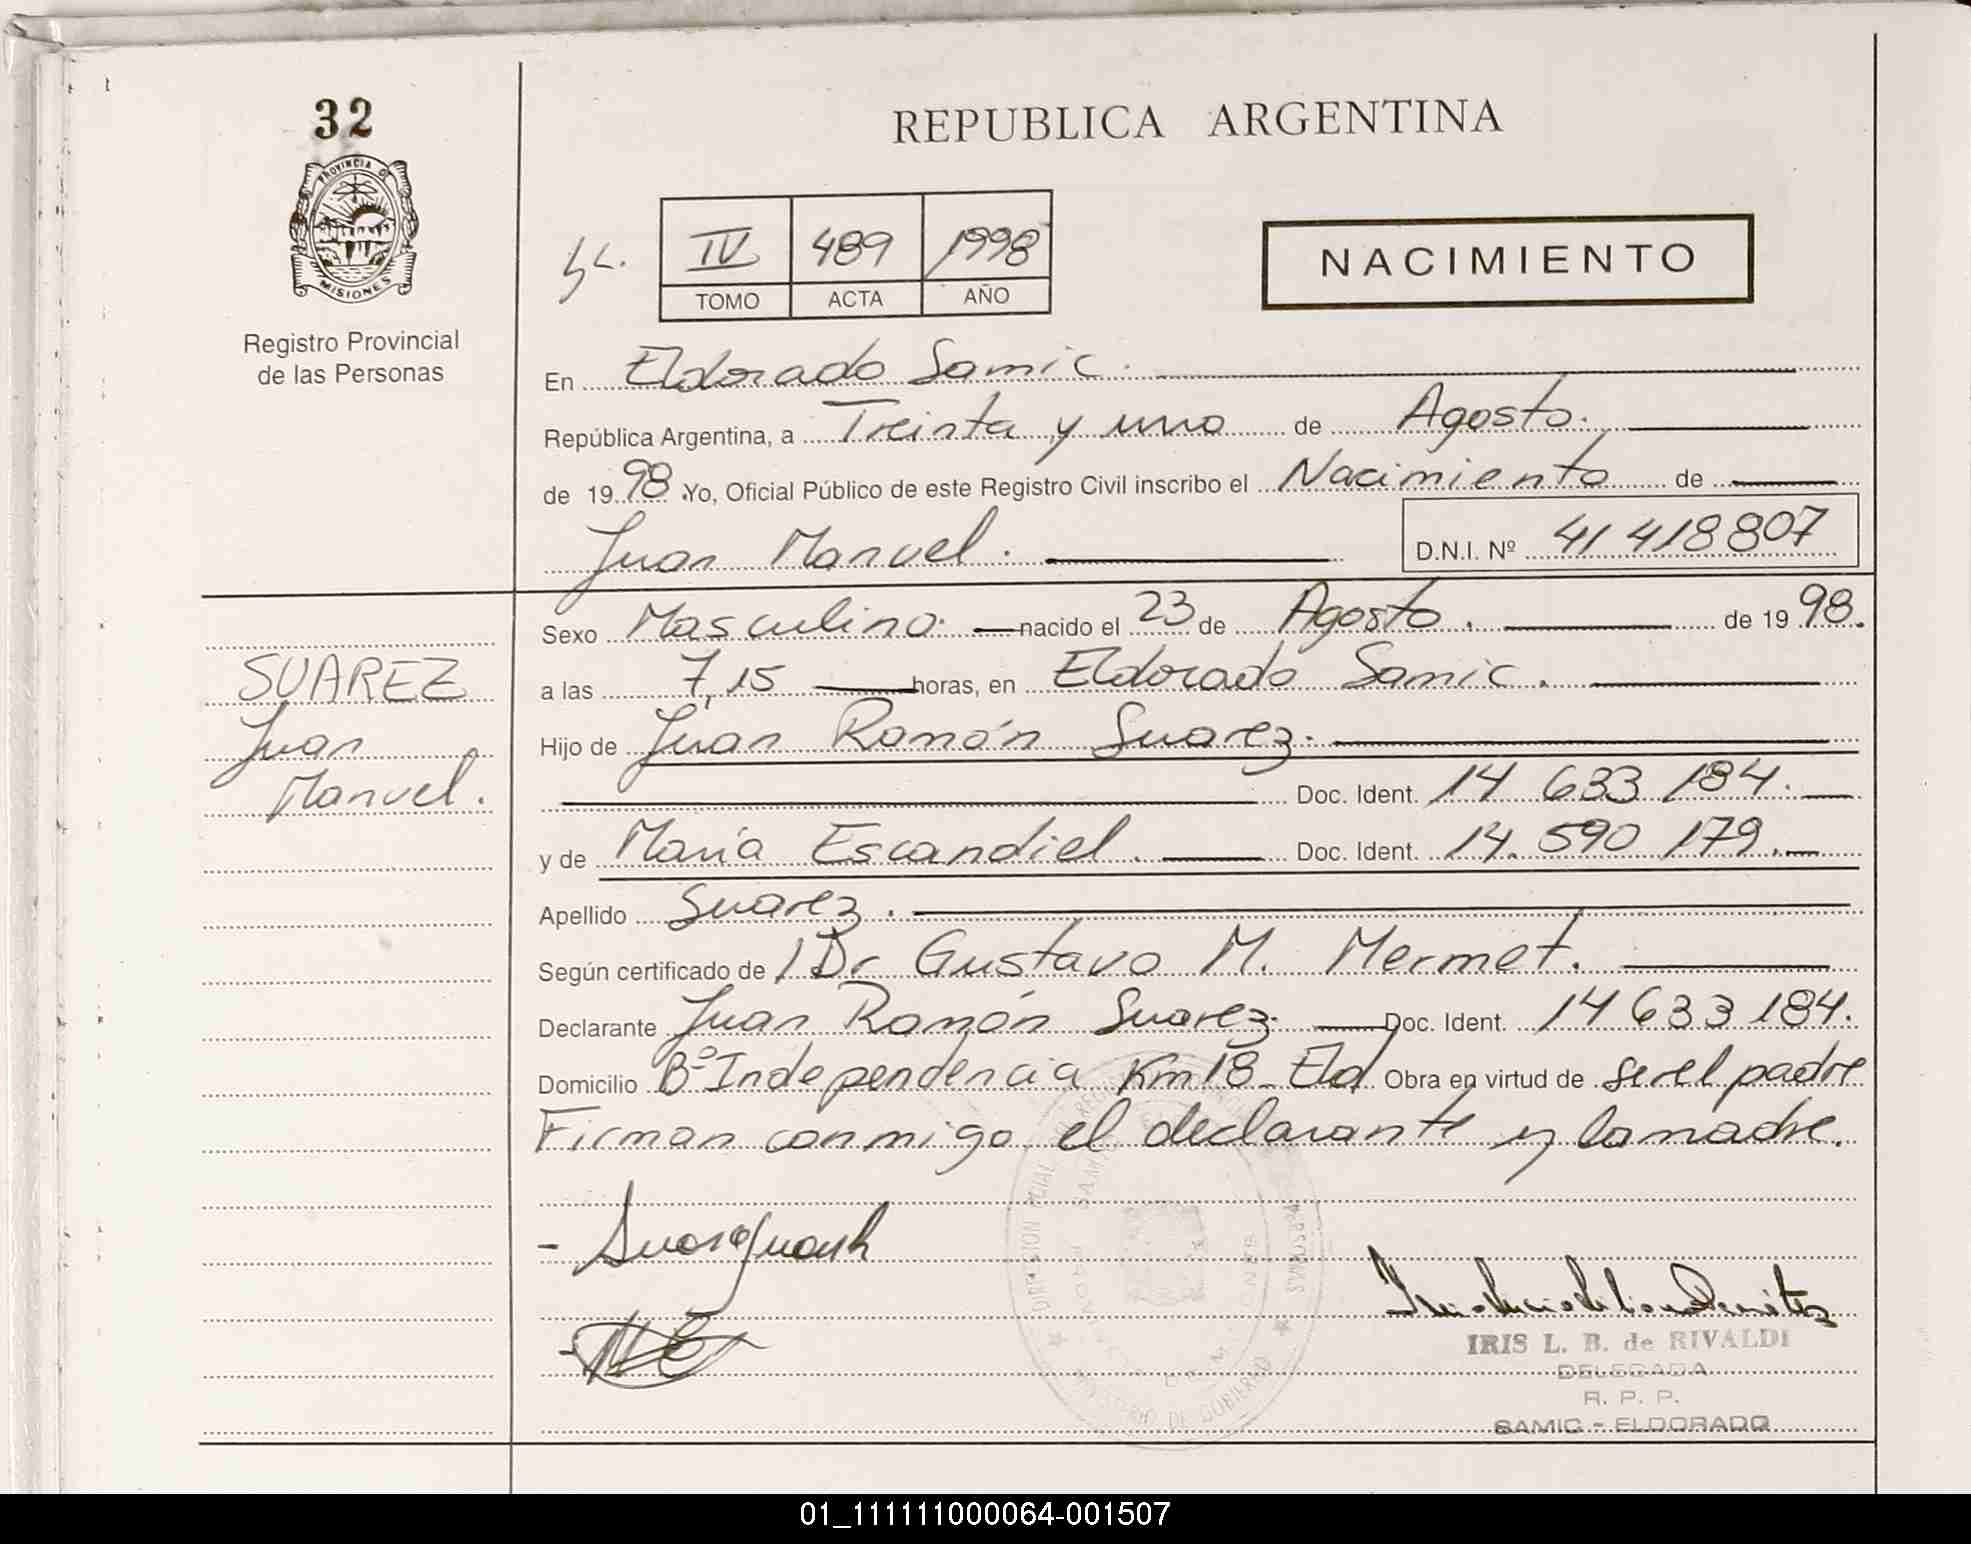 32
PROVINCIA DE
MISIONES
Registro Provincial
de las Personas
REPUBLICA ARGENTINA
IV 489 1998
TOMO ACTA AÑO
NACIMIENTO
En Eldorado Samic.
República Argentina, a Treinta y uno de Agosto.
de 1998. Yo, Oficial Público de este Registro Civil inscribo el Nacimiento de
Juan Manuel. D.N.I. Nº 41 418807
SUAREZ
Juan
Manuel.
Sexo Masculino. nacido el 23 de Agosto. de 1998.
a las 7,15 horas, en Eldorado Samic.
Hijo de Juan Ramón Suarez.
Doc. Ident. 14 633 184.
y de María Escandiel. Doc. Ident. 14.590 179.
Apellido Suarez.
Según certificado de Dr Gustavo M. Mermet.
Declarante Juan Ramón Suarez. Doc. Ident. 14 633 184.
Domicilio Bº Independencia Km 18 - Eld Obra en virtud de ser el padre
Firman conmigo el declarante y la madre.
IRIS L. B. de RIVALDI
DELEGADA
R. P. P.
SAMIC - ELDORADO
MINISTERIO DE GOBIERNO
01_111111000064-001507